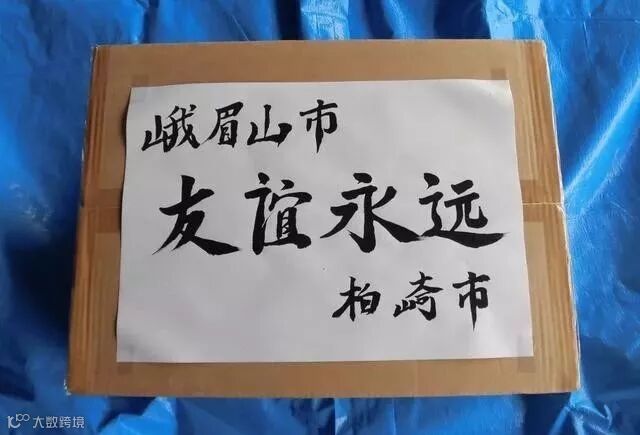 峨眉山市
友谊永远
柏崎市
大数跨境